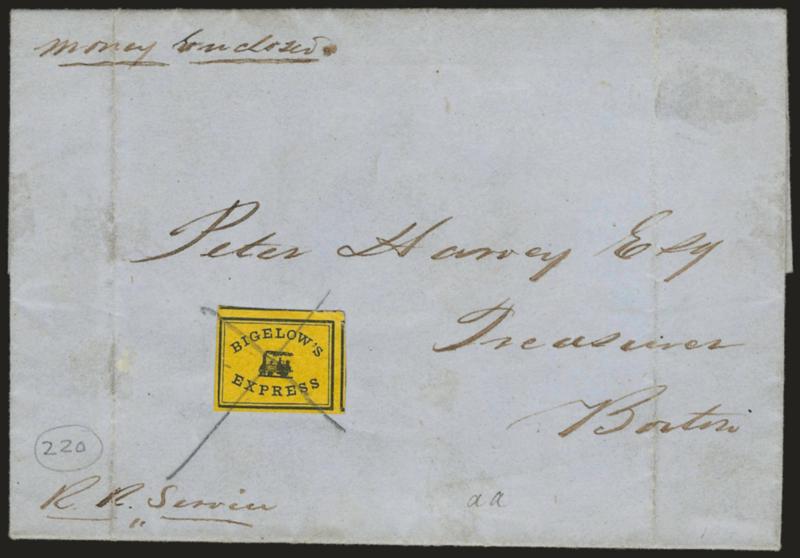 money enclosed.
Peter Harvey Esq
Treasurer
Boston
BIGELOW'S
EXPRESS
220
R. R. Service
aa